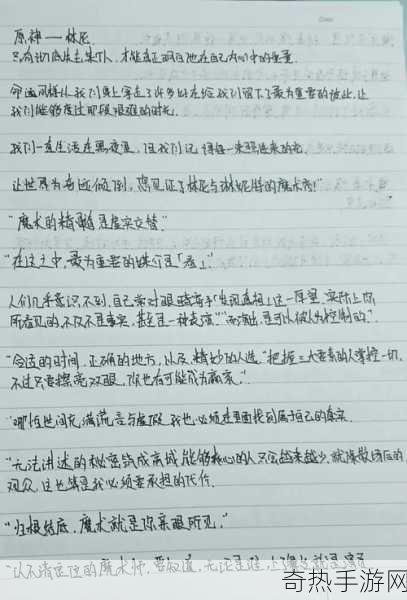 原神——林尼
只有彻底失去某个人,才能真正明白他在自己内心中的重量
命运同样从我们身上夺走了许多,好在给我们留下了最为重要的彼此,让
我们能够度过那段艰难的时光.
我们一直生活在黑夜里,但我们记得每一束照进来的光
让世界为奇迹倾倒,您见证了林尼与琳妮特的魔术秀!"
"魔术的精髓是虚实交替."
"在这之中,最为重要的媒介是「看」."
人们几乎意识不到,自己常对眼睛寄予「发现真相」这一厚望,实际上你
所看见的,不仅不是事实,甚至是一种表演""而演出,是可以被人为控制的."
"合适的时间,正确的地方,以及精妙的人选""把握三大要素的人掌控一切,
不过只要擦亮双眼,你也有可能成为赢家."
"哪怕世间充满谎言与虚假,我也必须在里面找到属于自己的真实.
"无法讲述的秘密筑成高城,能够核心的人只会越来越少,就像散场后的
观众,这也算是我必须要承担的代价.
"归根结底,魔术就是你亲眼所见."
"认不清定位的魔术师,要知道,无论是谁,上了舞台就是演员
奇热手游网